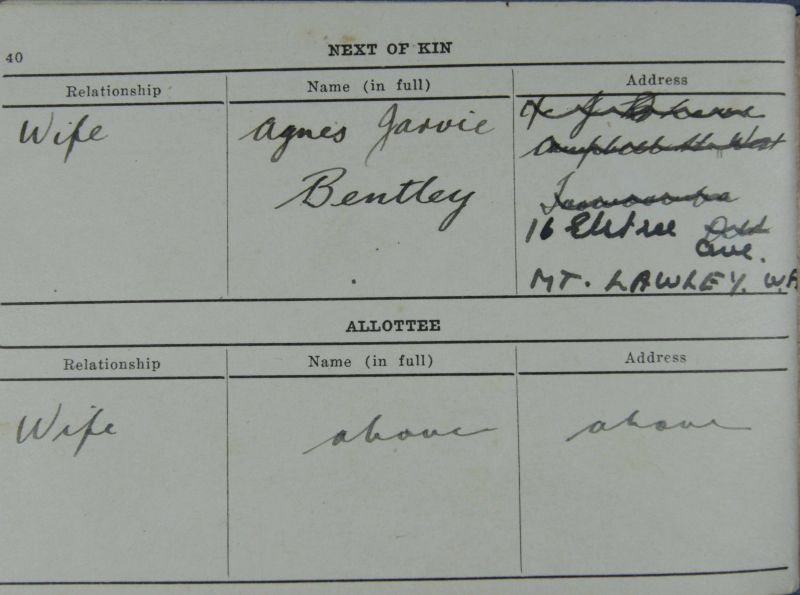 40
NEXT OF KIN
Relationship Name (in full) Address
Wife Agnes Jarvie
Bentley
Campbell St West
Toowoomba
16 Elstree
Ave.
MT. LAWLEY. W.A
ALLOTTEE
Relationship Name (in full) Address
Wife above above